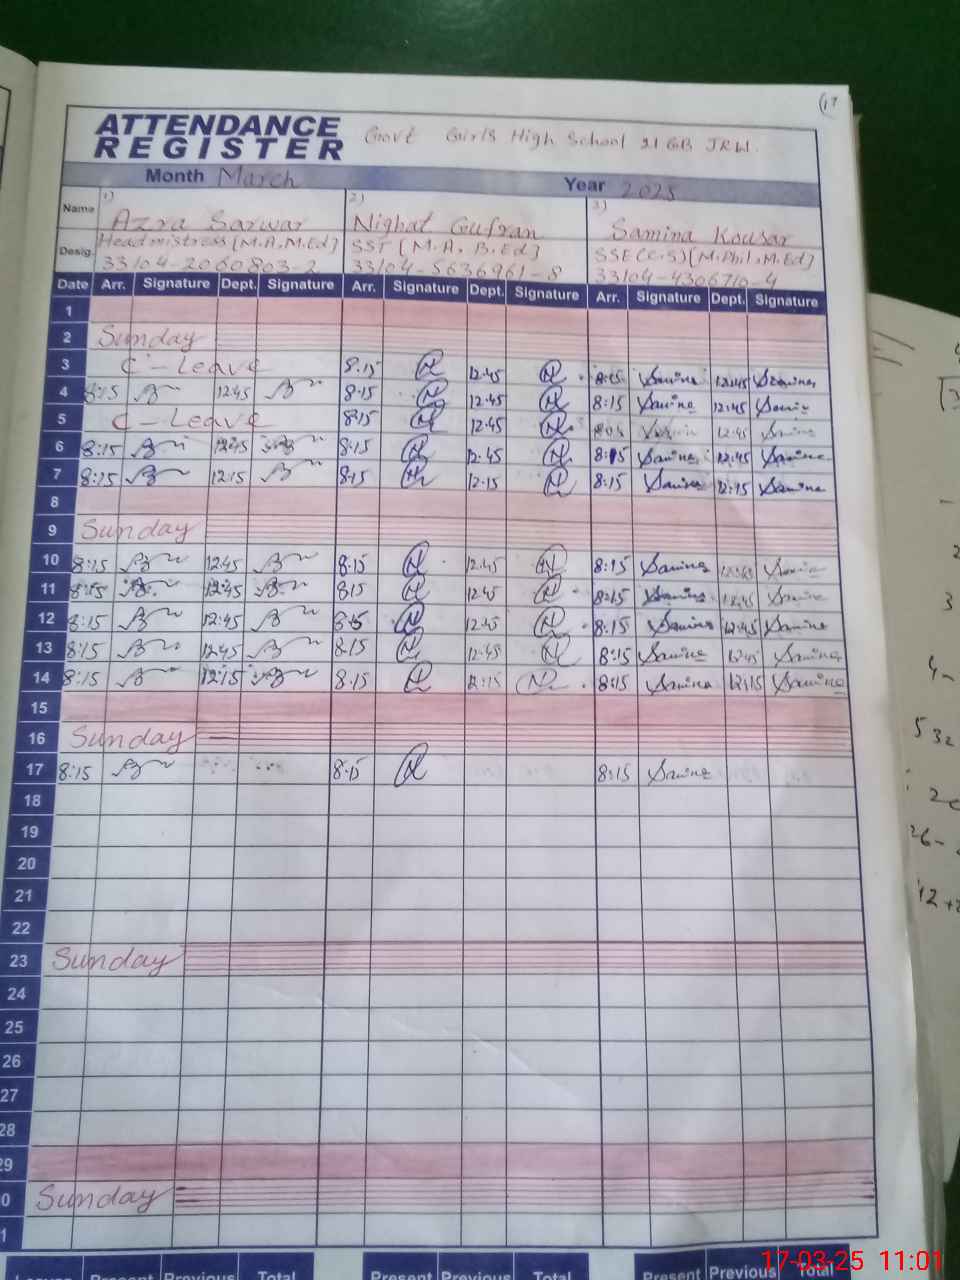 17
ATTENDANCE
REGISTER
Govt Girls High School 21 GB JRW.
Month March Year 2025
Name 1) Azra Sarwar 2) Nighat Gufran 3) Samina Kousar
Desig. Headmistress [M.A.M.Ed] SST [M.A. B.Ed] SSE(C.S) [M.Phil.M.Ed]
33104-2060803-2 33104-5636961-8 33104-4306710-4
Date Arr. Signature Dept. Signature Arr. Signature Dept. Signature Arr. Signature Dept. Signature
1
2 Sunday
3 C-Leave 8:15 12:45 Samina 12:45 Samina
4 8:15 12:45 8:15 12:45 8:15 Samina 12:45 Samina
5 C-Leave 8:15 12:45 12:45 Samina
6 8:15 12:45 8:15 12:45 8:15 Samina 12:45 Samina
7 8:15 12:15 8:15 12:15 8:15 Samina 12:15 Samina
8
9 Sunday
10 8:15 12:45 8:15 12:45 8:15 Samina 12:45 Samina
11 8:15 12:45 8:15 12:45 8:15 Samina 12:45 Samina
12 8:15 12:45 8:15 12:45 8:15 Samina 12:45 Samina
13 8:15 12:45 8:15 12:45 8:15 Samina 12:45 Samina
14 8:15 12:15 8:15 12:15 8:15 Samina 12:15 Samina
15
16 Sunday
17 8:15 8:15 8:15 Samina
18
19
20
21
22
23 Sunday
24
25
26
27
28
29
0 Sunday
1
Present Previous Total Present Previous Total Present Previous Total
17-03-25 11:01